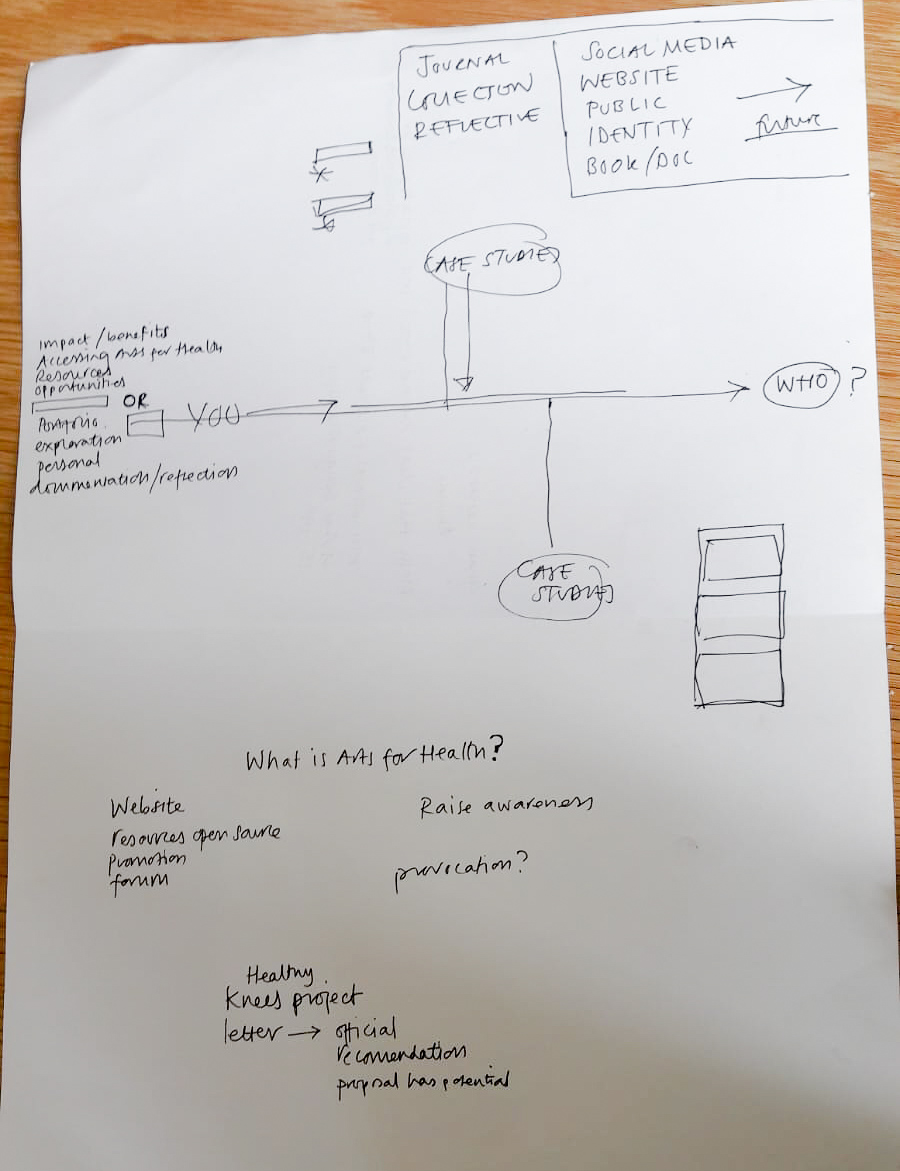 JOURNAL
COLLECTION
REFLECTIVE
SOCIAL MEDIA
WEBSITE
PUBLIC
IDENTITY
BOOK/DOC
future
CASE STUDIES
Impact/benefits
Accessing Arts for Health
Resources
opportunities
OR
YOU
WHO?
exploration
personal
documentation/reflection
CASE
STUDIES
What is Arts for Health?
Website
resources open source
promotion
forum
Raise awareness
provocation?
Healthy
Knees project
letter → official
recomendation
proposal has potential